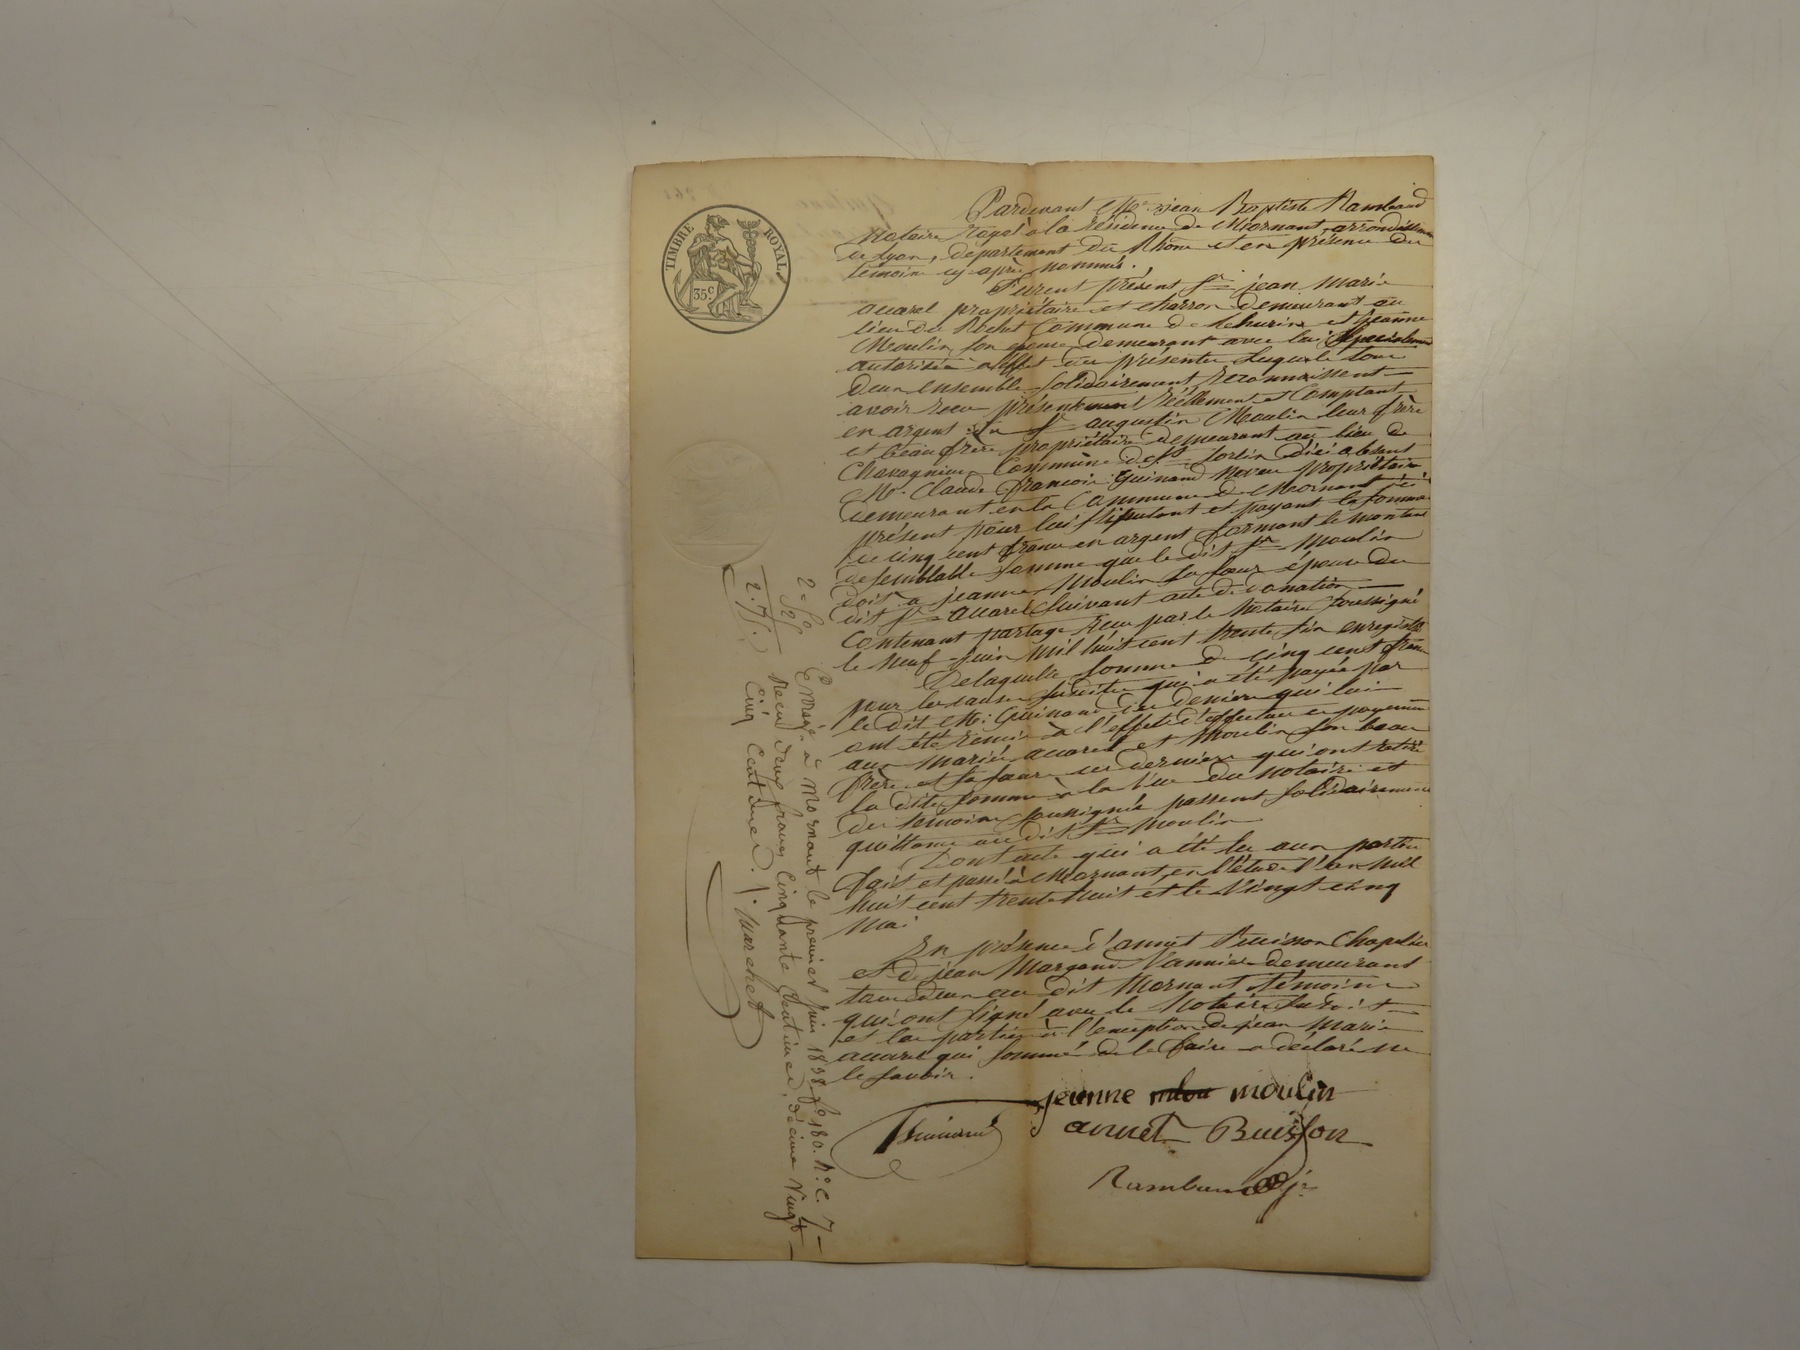 TIMBRE ROYAL
35 c.
Pardevant Me jean Baptiste Rambaud
Notaire Royal à la résidence de Mornant, arrondissement
de Lyon, département du Rhône et en présence des
témoins cy après nommés.
Furent présent Sr jean Marie
accarel propriétaire et charron demeurant au
lieu du Rochet Commune de et jeanne
Moulin son epouse demeurant avec lui Spécialement
autorisée à l'effet des présentes Lesquels tous
deux ensemble Solidairement reconnaissent
avoir recu présentement Réellement et Comptant
en argent du Sr augustin Moulin leur frère
et beaufrère propriétaire demeurant au lieu de
Chavagnieux Commune de St Sorlin d'ici absent
Mr Claude françois Guinand neveu propriétaire
demeurant en la Commune de Mornant ici
présent pour lui Stipulant et payant la Somme
de cinq cent francs en argent formant le montant
de semblable Somme que le dit Sr Moulin
doit a jeanne Moulin Sa Soeur épouse du
dit Sr accarel Suivant acte de donation
Contenant partage recu par le Notaire Soussigné
le Neuf juin Mil huit cent trente Six enregistré
De laquelle Somme de cinq cent francs
pour les causes susdites qui a été payée par
le dit Mr Guinand des deniers qui lui
ont été remis à l'effet d'effectuer ce payement
aux mariés accarel et Moulin Son beau
frère et Sa Soeur ces derniers qui ont retiré
la dite Somme à la Vue du notaire et
des témoins Soussignés passent Solidairement
quittance au dit Sr Moulin
Dont acte qui a été lu aux parties
fait et passé à Mornant en l'étude l'an Mil
huit cent trente huit et le Vingt cinq
Mai
En présence d'annet Buisson Chapelier
et de jean Margand Vannier demeurant
tous deux au dit Mornant témoins
qui ont Signé avec le Notaire Susdit
et les parties à l'exception de jean Marie
accarel qui Sommé de le faire a déclaré ne
le Savoir.
jeanne moulin
annet Buisson
Guinand
Rambaud je
Enregé à Mornant le premier juin 1838 fo 180. Ro c. 7
Recu deux francs Cinquante Centimes, décime Vingt
Cinq Centimes. Marchet
2 = 50
25
2.75.